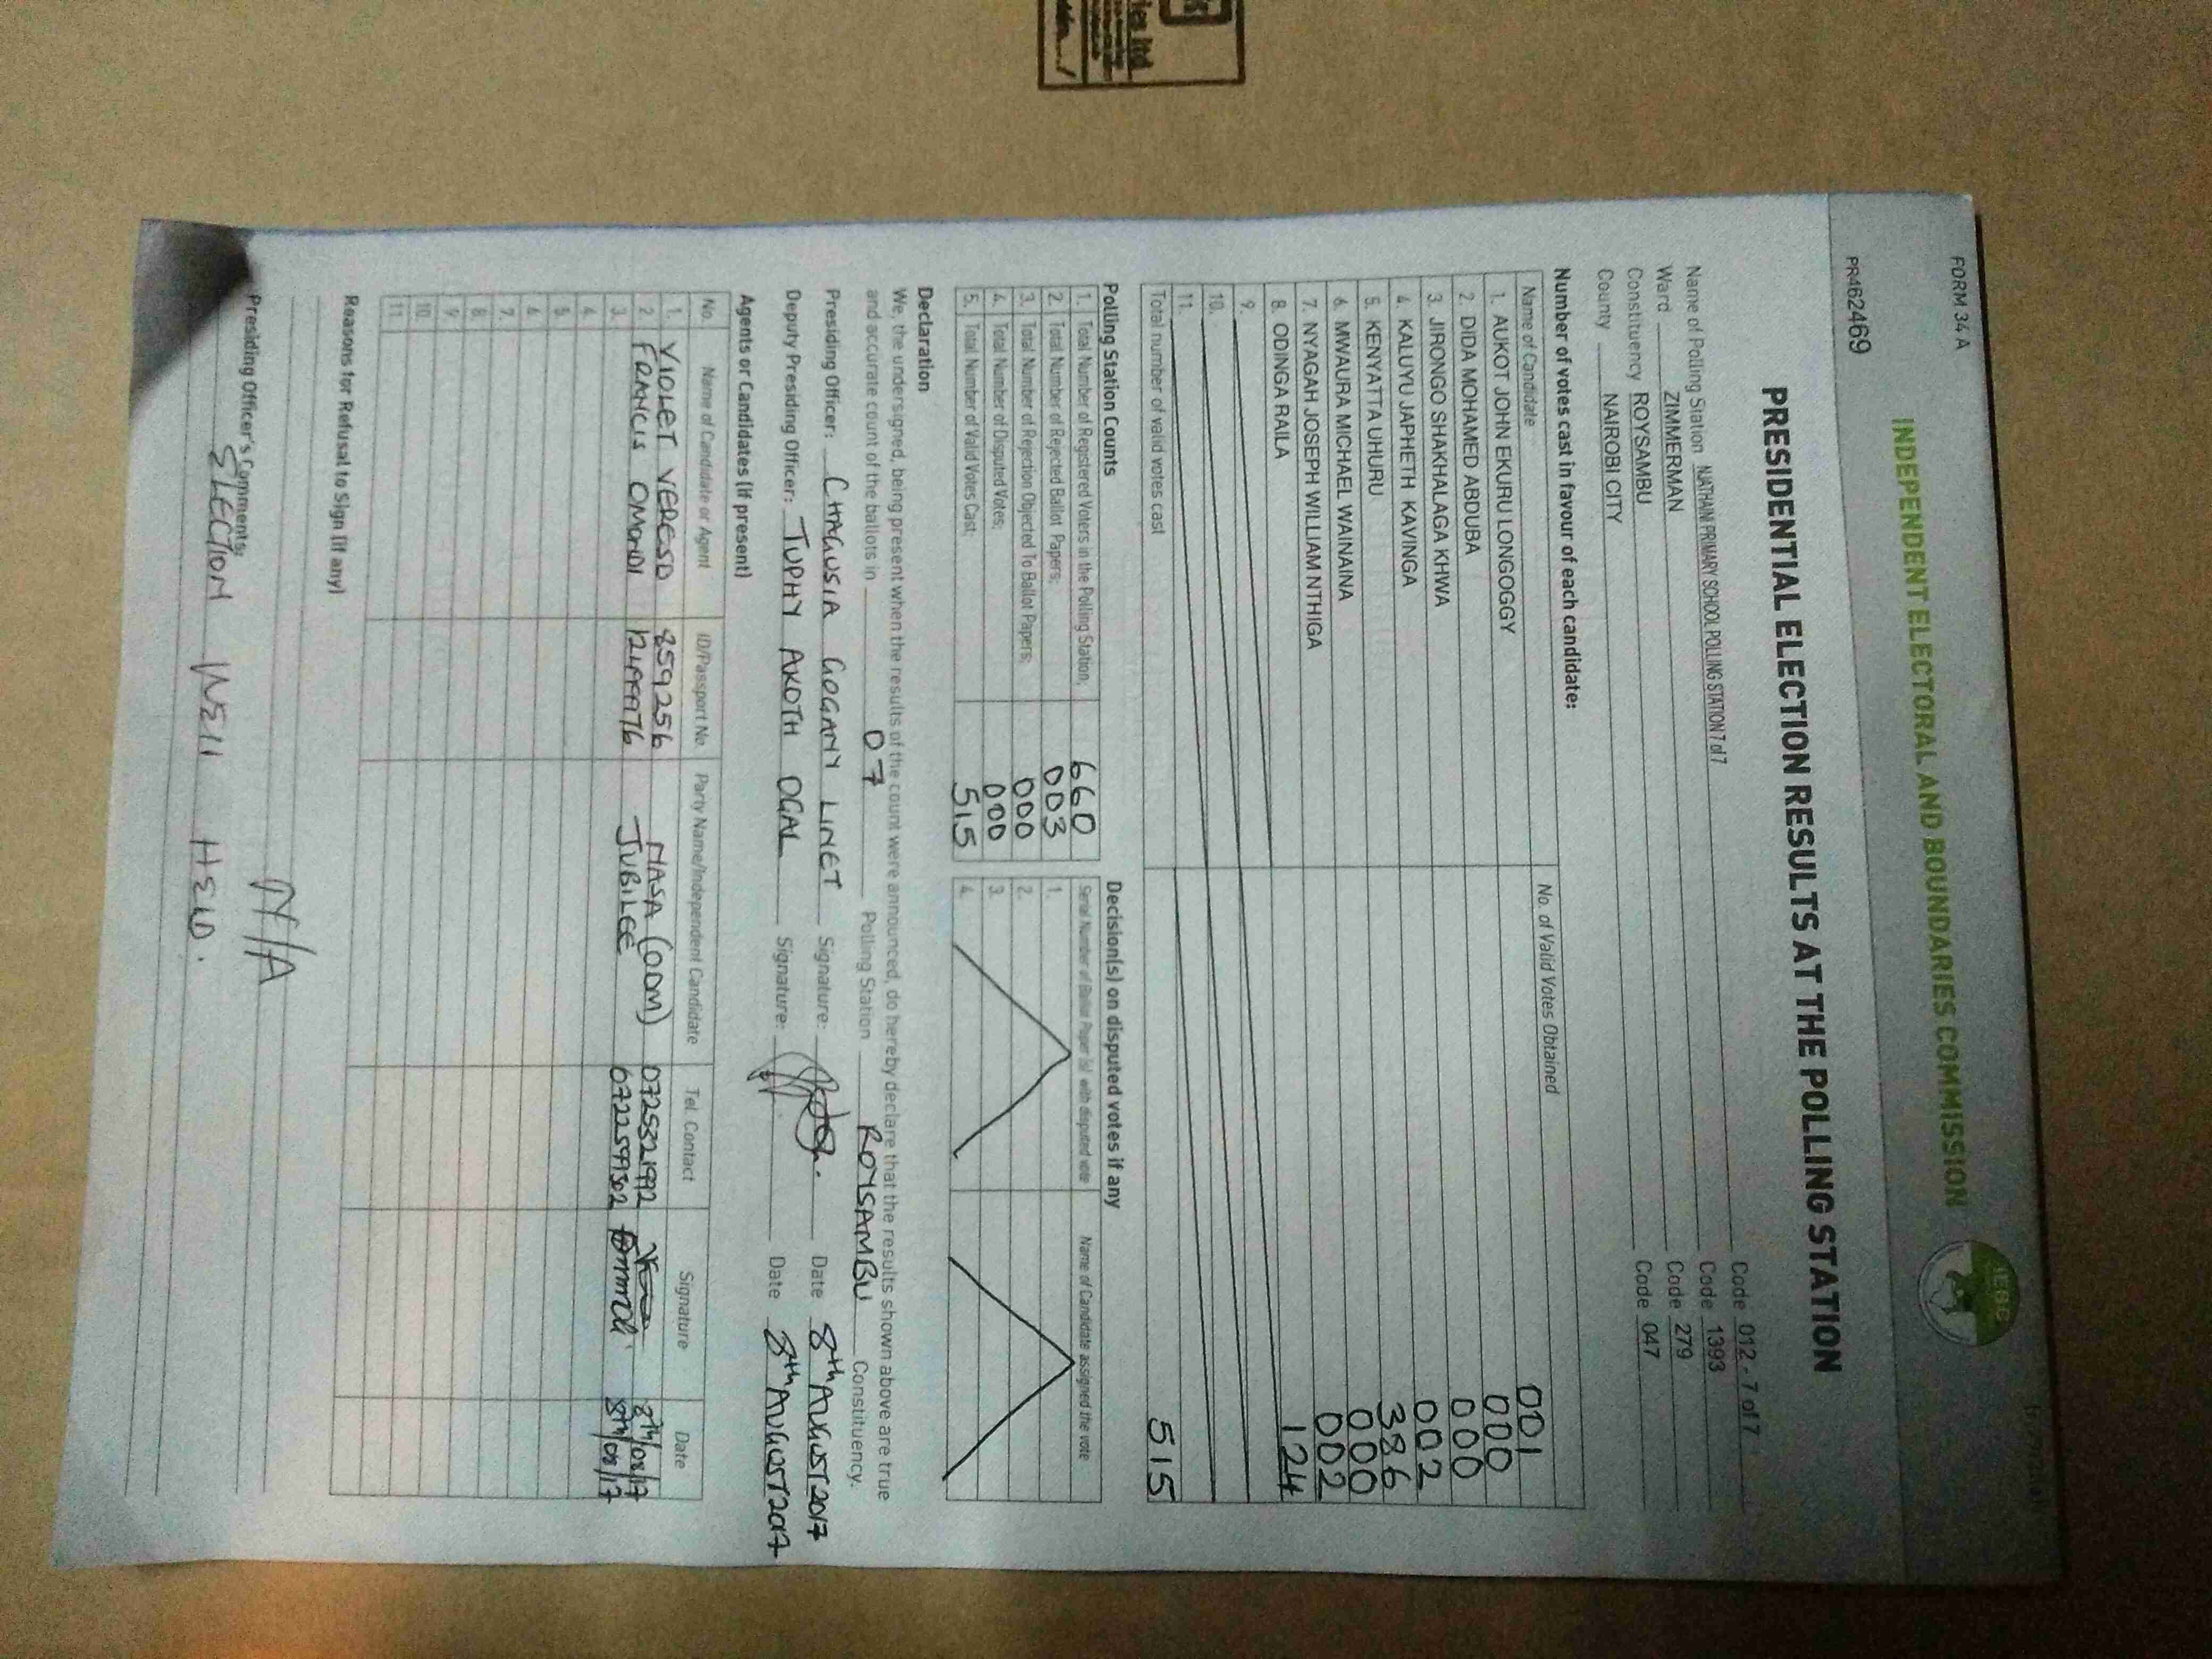 FORM 34 A
INDEPENDENT ELECTORAL AND BOUNDARIES COMMISSION
IEBC
PR462469
PRESIDENTIAL ELECTION RESULTS AT THE POLLING STATION
Name of Polling Station NJATHAINI PRIMARY SCHOOL POLLING STATION 7 of 7 Code 012 - 7 of 7
Ward ZIMMERMAN Code 1393
Constituency ROYSAMBU Code 279
County NAIROBI CITY Code 047
Number of votes cast in favour of each candidate:
Name of Candidate No. of Valid Votes Obtained
1. AUKOT JOHN EKURU LONGOGGY 001
2. DIDA MOHAMED ABDUBA 000
3. JIRONGO SHAKHALAGA KHWA 000
4. KALUYU JAPHETH KAVINGA 002
5. KENYATTA UHURU 386
6. MWAURA MICHAEL WAINAINA 000
7. NYAGAH JOSEPH WILLIAM NTHIGA 002
8. ODINGA RAILA 124
9.
10.
11.
Total number of valid votes cast 515
Polling Station Counts
1. Total Number of Registered Voters in the Polling Station; 660
2. Total Number of Rejected Ballot Papers; 003
3. Total Number of Rejection Objected To Ballot Papers; 000
4. Total Number of Disputed Votes; 000
5. Total Number of Valid Votes Cast; 515
Decision(s) on disputed votes if any
Serial Number of Ballot Paper (s) with disputed vote Name of Candidate assigned the vote
1.
2.
3.
4.
Declaration
We, the undersigned, being present when the results of the count were announced, do hereby declare that the results shown above are true
and accurate count of the ballots in 07 Polling Station ROYSAMBU Constituency.
Presiding Officer: CHAGUSIA GOGANY LINET Signature: Date 8th AUGUST 2017
Deputy Presiding Officer: TUPHY AKOTH OGAL Signature: Date 8th AUGUST 2017
Agents or Candidates (if present)
No. Name of Candidate or Agent ID/Passport No Party Name/Independent Candidate Tel. Contact Signature Date
1. VIOLET VERESD 8592256 NASA (ODM) 0725321992 8th/08/17
2. FRANCIS OMONDI JUBILEE 0722599302 8th/08/17
3.
4.
5.
6.
7.
8.
9.
10.
11.
Reasons for Refusal to Sign (if any)
N/A
Presiding Officer's Comments:
ELECTION WELL HELD.
les ltd